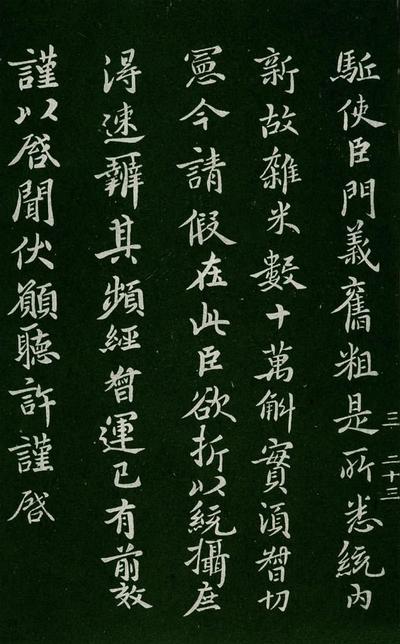 駈使臣門義舊粗是所悉統內
新故雜米數十萬斛實須督切
憲今請假在此臣欲折以統攝庶
得速辦其頻經督運已有前效
謹以啓聞伏願聽許謹啓
三 二十三